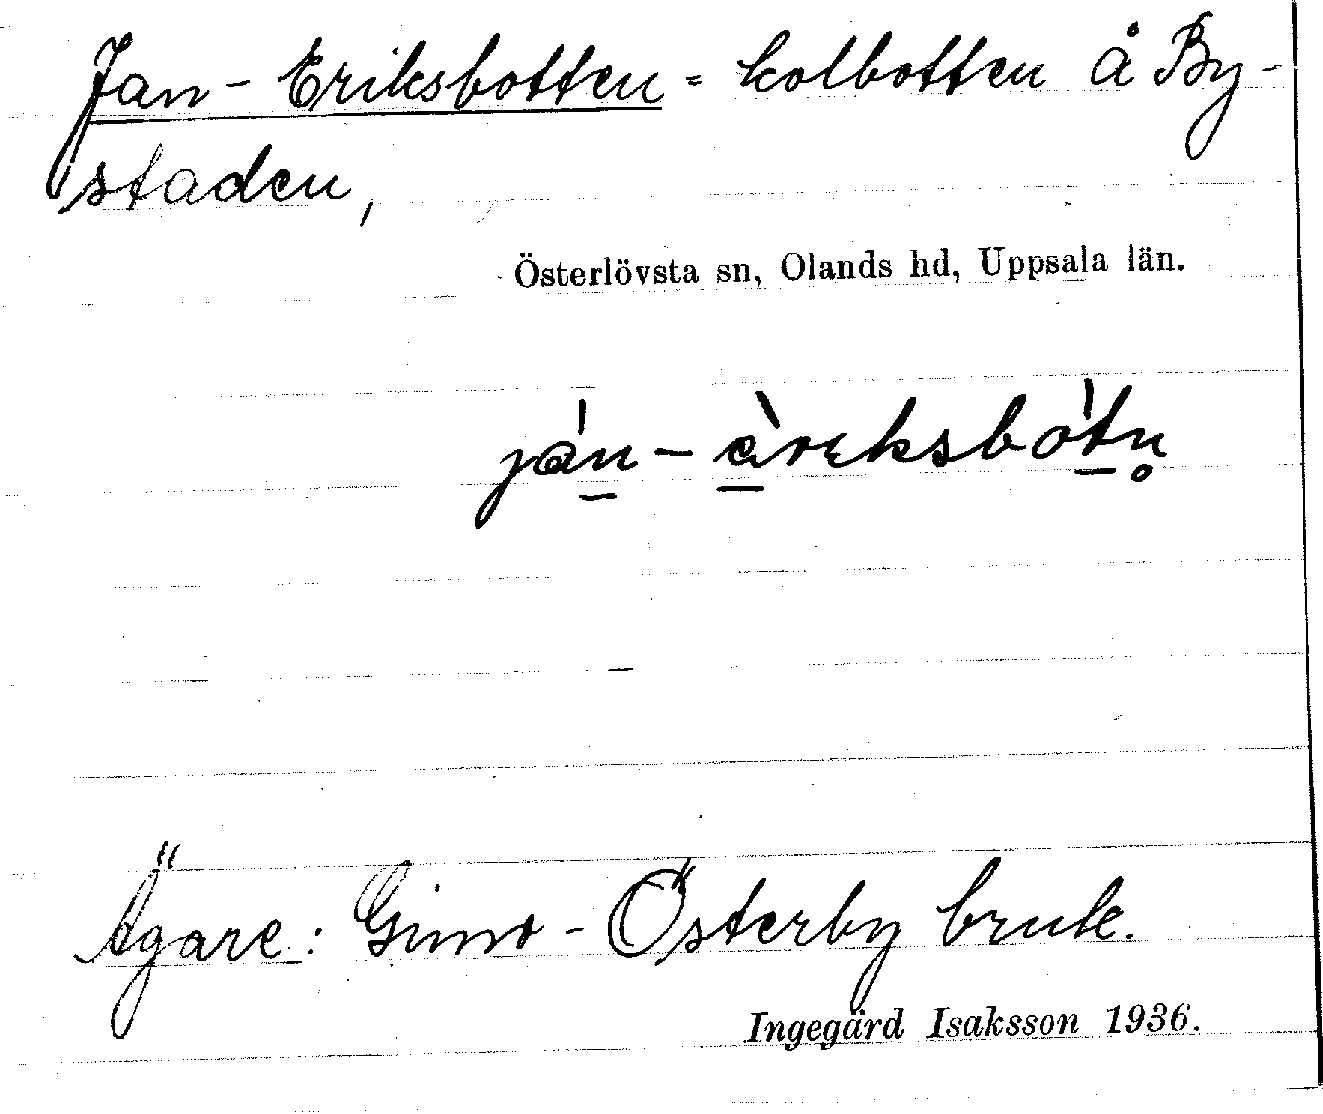 Jan-Eriksbotten = kolbotten å By-
staden,
Österlövsta sn, Olands hd, Uppsala län.
ján-àreksbótn̥
Ägare: Gimo-Österby bruk.
Ingegärd Isaksson 1936.